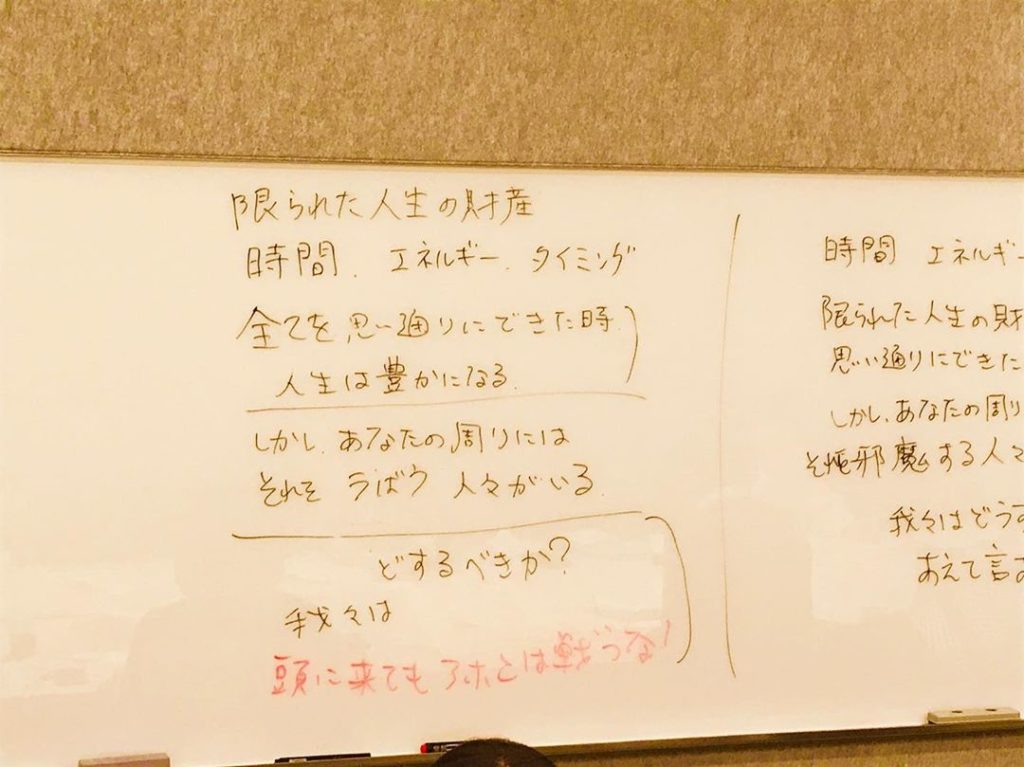 限られた人生の財産
時間、エネルギー、タイミング
全てを思い通りにできた時
人生は豊かになる。
しかし、あなたの周りには
それそ うばう 人々がいる
どするべきか?
我々は
頭に来てもアホとは戦うな!
時間 エネルギー
限られた人生の財
思い通りにできた
しかし、あなたの周り
邪魔する人々
我々はどうす
あえて言お